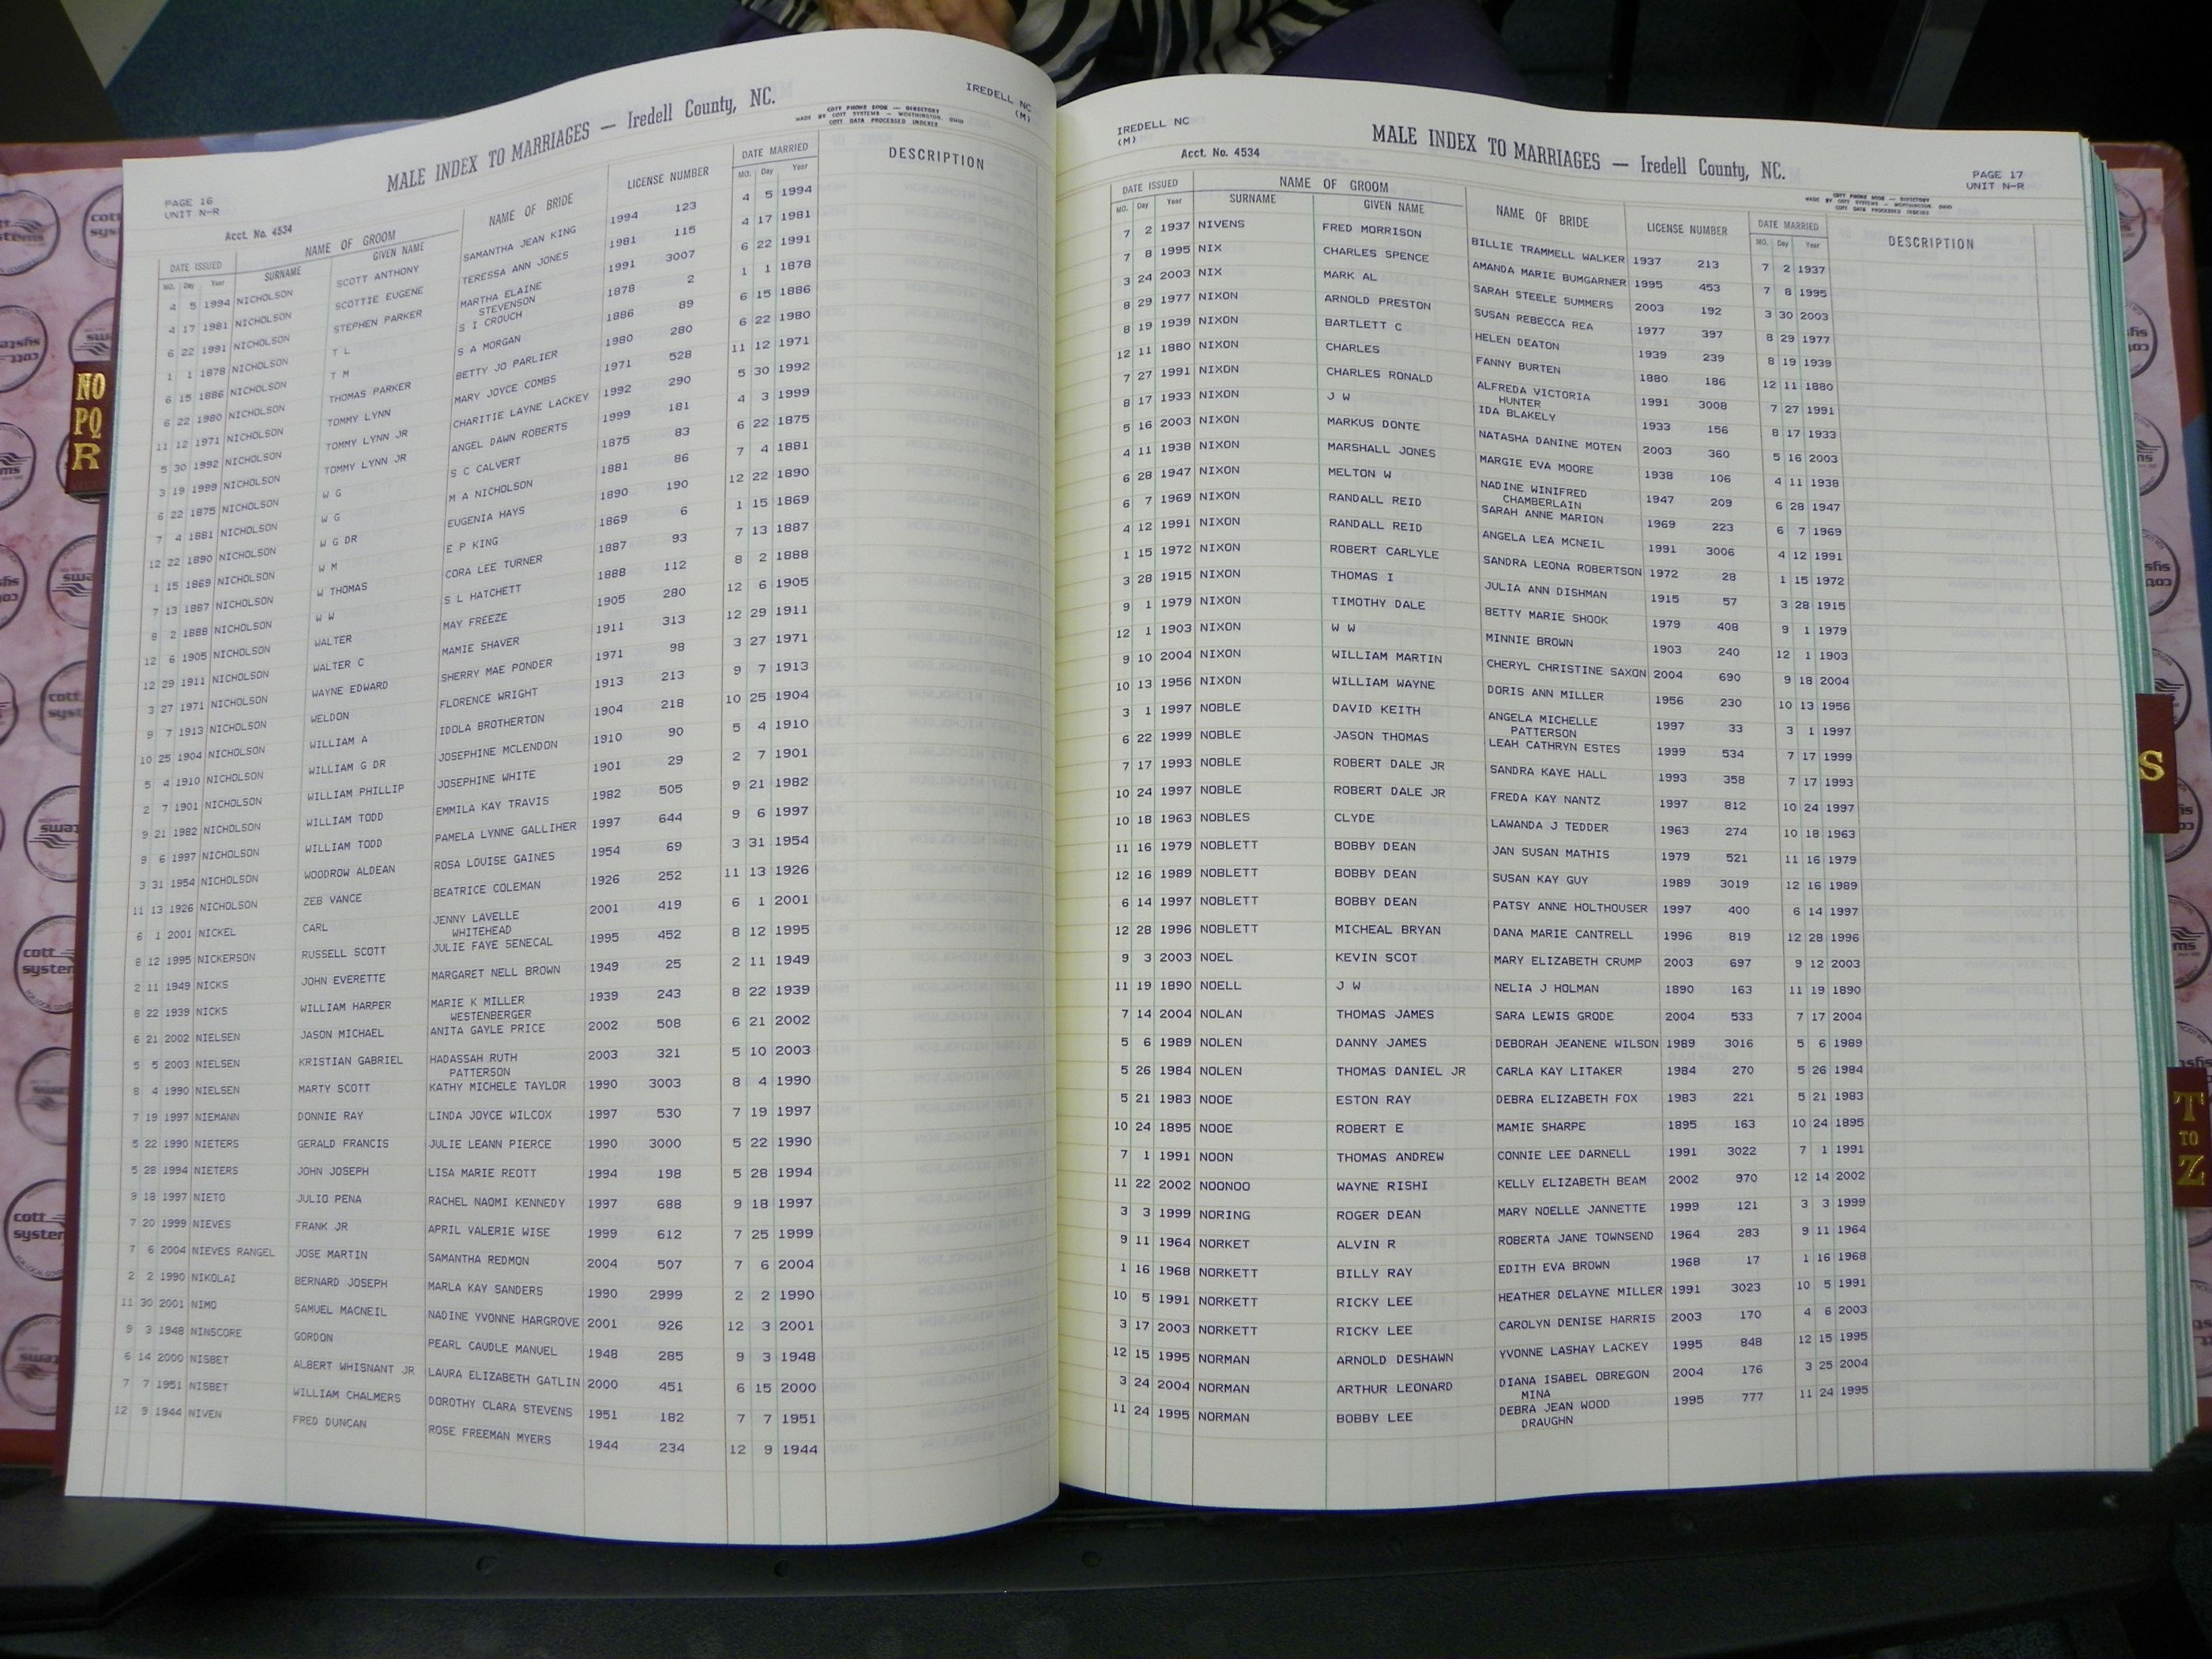 IREDELL NC
(M)
MALE INDEX TO MARRIAGES — Iredell County, NC.
COTT PHONE BOOK — DIRECTORY
MADE BY COTT SYSTEMS — WORTHINGTON, OHIO
COTT DATA PROCESSED INDEXER
PAGE 16
UNIT N-R
Acct. No. 4534
DATE ISSUED NAME OF GROOM NAME OF BRIDE LICENSE NUMBER DATE MARRIED DESCRIPTION
MO. Day Year SURNAME GIVEN NAME MO. Day Year
4 5 1994 NICHOLSON SCOTT ANTHONY SAMANTHA JEAN KING 1994 123 4 5 1994
4 17 1981 NICHOLSON SCOTTIE EUGENE TERESSA ANN JONES 1981 115 4 17 1981
6 22 1991 NICHOLSON STEPHEN PARKER MARTHA ELAINE 1991 3007 6 22 1991
STEVENSON
1 1 1878 NICHOLSON T L S I CROUCH 1878 2 1 1 1878
6 15 1886 NICHOLSON T M S A MORGAN 1886 89 6 15 1886
6 22 1980 NICHOLSON THOMAS PARKER BETTY JO PARLIER 1980 280 6 22 1980
11 12 1971 NICHOLSON TOMMY LYNN MARY JOYCE COMBS 1971 528 11 12 1971
5 30 1992 NICHOLSON TOMMY LYNN JR CHARITIE LAYNE LACKEY 1992 290 5 30 1992
3 19 1999 NICHOLSON TOMMY LYNN JR ANGEL DAWN ROBERTS 1999 181 4 3 1999
6 22 1875 NICHOLSON W G S C CALVERT 1875 83 6 22 1875
7 4 1881 NICHOLSON W G M A NICHOLSON 1881 86 7 4 1881
12 22 1890 NICHOLSON W G DR EUGENIA HAYS 1890 190 12 22 1890
1 15 1869 NICHOLSON W M E P KING 1869 6 1 15 1869
7 13 1887 NICHOLSON W THOMAS CORA LEE TURNER 1887 93 7 13 1887
8 2 1888 NICHOLSON W W S L HATCHETT 1888 112 8 2 1888
12 6 1905 NICHOLSON WALTER MAY FREEZE 1905 280 12 6 1905
12 29 1911 NICHOLSON WALTER C MAMIE SHAVER 1911 313 12 29 1911
3 27 1971 NICHOLSON WAYNE EDWARD SHERRY MAE PONDER 1971 98 3 27 1971
9 7 1913 NICHOLSON WELDON FLORENCE WRIGHT 1913 213 9 7 1913
10 25 1904 NICHOLSON WILLIAM A IDOLA BROTHERTON 1904 218 10 25 1904
5 4 1910 NICHOLSON WILLIAM G DR JOSEPHINE MCLENDON 1910 90 5 4 1910
2 7 1901 NICHOLSON WILLIAM PHILLIP JOSEPHINE WHITE 1901 29 2 7 1901
9 21 1982 NICHOLSON WILLIAM TODD EMMILA KAY TRAVIS 1982 505 9 21 1982
9 6 1997 NICHOLSON WILLIAM TODD PAMELA LYNNE GALLIHER 1997 644 9 6 1997
3 31 1954 NICHOLSON WOODROW ALDEAN ROSA LOUISE GAINES 1954 69 3 31 1954
11 13 1926 NICHOLSON ZEB VANCE BEATRICE COLEMAN 1926 252 11 13 1926
6 1 2001 NICKEL CARL JENNY LAVELLE 2001 419 6 1 2001
WHITEHEAD
8 12 1995 NICKERSON RUSSELL SCOTT JULIE FAYE SENECAL 1995 452 8 12 1995
2 11 1949 NICKS JOHN EVERETTE MARGARET NELL BROWN 1949 25 2 11 1949
8 22 1939 NICKS WILLIAM HARPER MARIE K MILLER 1939 243 8 22 1939
WESTENBERGER
6 21 2002 NIELSEN JASON MICHAEL ANITA GAYLE PRICE 2002 508 6 21 2002
5 5 2003 NIELSEN KRISTIAN GABRIEL HADASSAH RUTH 2003 321 5 10 2003
PATTERSON
8 4 1990 NIELSEN MARTY SCOTT KATHY MICHELE TAYLOR 1990 3003 8 4 1990
7 19 1997 NIEMANN DONNIE RAY LINDA JOYCE WILCOX 1997 530 7 19 1997
5 22 1990 NIETERS GERALD FRANCIS JULIE LEANN PIERCE 1990 3000 5 22 1990
5 28 1994 NIETERS JOHN JOSEPH LISA MARIE REOTT 1994 198 5 28 1994
9 18 1997 NIETO JULIO PENA RACHEL NAOMI KENNEDY 1997 688 9 18 1997
7 20 1999 NIEVES FRANK JR APRIL VALERIE WISE 1999 612 7 25 1999
7 6 2004 NIEVES RANGEL JOSE MARTIN SAMANTHA REDMON 2004 507 7 6 2004
2 2 1990 NIKOLAI BERNARD JOSEPH MARLA KAY SANDERS 1990 2999 2 2 1990
11 30 2001 NIMO SAMUEL MACNEIL NADINE YVONNE HARGROVE 2001 926 12 3 2001
9 3 1948 NINSCORE GORDON PEARL CAUDLE MANUEL 1948 285 9 3 1948
6 14 2000 NISBET ALBERT WHISNANT JR LAURA ELIZABETH GATLIN 2000 451 6 15 2000
7 7 1951 NISBET WILLIAM CHALMERS DOROTHY CLARA STEVENS 1951 182 7 7 1951
12 9 1944 NIVEN FRED DUNCAN ROSE FREEMAN MYERS 1944 234 12 9 1944
IREDELL NC
(M)
MALE INDEX TO MARRIAGES — Iredell County, NC.
Acct. No. 4534
PAGE 17
UNIT N-R
COTT PHONE BOOK — DIRECTORY
MADE BY COTT SYSTEMS — WORTHINGTON, OHIO
COTT DATA PROCESSED INDEXER
DATE ISSUED NAME OF GROOM NAME OF BRIDE LICENSE NUMBER DATE MARRIED DESCRIPTION
MO. Day Year SURNAME GIVEN NAME MO. Day Year
7 2 1937 NIVENS FRED MORRISON BILLIE TRAMMELL WALKER 1937 213 7 2 1937
7 8 1995 NIX CHARLES SPENCE AMANDA MARIE BUMGARNER 1995 453 7 8 1995
3 24 2003 NIX MARK AL SARAH STEELE SUMMERS 2003 192 3 30 2003
8 29 1977 NIXON ARNOLD PRESTON SUSAN REBECCA REA 1977 397 8 29 1977
8 19 1939 NIXON BARTLETT C HELEN DEATON 1939 239 8 19 1939
12 11 1880 NIXON CHARLES FANNY BURTEN 1880 186 12 11 1880
7 27 1991 NIXON CHARLES RONALD ALFREDA VICTORIA 1991 3008 7 27 1991
HUNTER
8 17 1933 NIXON J W IDA BLAKELY 1933 156 8 17 1933
5 16 2003 NIXON MARKUS DONTE NATASHA DANINE MOTEN 2003 360 5 16 2003
4 11 1938 NIXON MARSHALL JONES MARGIE EVA MOORE 1938 106 4 11 1938
6 28 1947 NIXON MELTON W NADINE WINIFRED 1947 209 6 28 1947
CHAMBERLAIN
6 7 1969 NIXON RANDALL REID SARAH ANNE MARION 1969 223 6 7 1969
4 12 1991 NIXON RANDALL REID ANGELA LEA MCNEIL 1991 3006 4 12 1991
1 15 1972 NIXON ROBERT CARLYLE SANDRA LEONA ROBERTSON 1972 28 1 15 1972
3 28 1915 NIXON THOMAS I JULIA ANN DISHMAN 1915 57 3 28 1915
9 1 1979 NIXON TIMOTHY DALE BETTY MARIE SHOOK 1979 408 9 1 1979
12 1 1903 NIXON W W MINNIE BROWN 1903 240 12 1 1903
9 10 2004 NIXON WILLIAM MARTIN CHERYL CHRISTINE SAXON 2004 690 9 18 2004
10 13 1956 NIXON WILLIAM WAYNE DORIS ANN MILLER 1956 230 10 13 1956
3 1 1997 NOBLE DAVID KEITH ANGELA MICHELLE 1997 33 3 1 1997
PATTERSON
6 22 1999 NOBLE JASON THOMAS LEAH CATHRYN ESTES 1999 534 7 17 1999
7 17 1993 NOBLE ROBERT DALE JR SANDRA KAYE HALL 1993 358 7 17 1993
10 24 1997 NOBLE ROBERT DALE JR FREDA KAY NANTZ 1997 812 10 24 1997
10 18 1963 NOBLES CLYDE LAWANDA J TEDDER 1963 274 10 18 1963
11 16 1979 NOBLETT BOBBY DEAN JAN SUSAN MATHIS 1979 521 11 16 1979
12 16 1989 NOBLETT BOBBY DEAN SUSAN KAY GUY 1989 3019 12 16 1989
6 14 1997 NOBLETT BOBBY DEAN PATSY ANNE HOLTHOUSER 1997 400 6 14 1997
12 28 1996 NOBLETT MICHEAL BRYAN DANA MARIE CANTRELL 1996 819 12 28 1996
9 3 2003 NOEL KEVIN SCOT MARY ELIZABETH CRUMP 2003 697 9 12 2003
11 19 1890 NOELL J W NELIA J HOLMAN 1890 163 11 19 1890
7 14 2004 NOLAN THOMAS JAMES SARA LEWIS GRODE 2004 533 7 17 2004
5 6 1989 NOLEN DANNY JAMES DEBORAH JEANENE WILSON 1989 3016 5 6 1989
5 26 1984 NOLEN THOMAS DANIEL JR CARLA KAY LITAKER 1984 270 5 26 1984
5 21 1983 NOOE ESTON RAY DEBRA ELIZABETH FOX 1983 221 5 21 1983
10 24 1895 NOOE ROBERT E MAMIE SHARPE 1895 163 10 24 1895
7 1 1991 NOON THOMAS ANDREW CONNIE LEE DARNELL 1991 3022 7 1 1991
11 22 2002 NOONOO WAYNE RISHI KELLY ELIZABETH BEAM 2002 970 12 14 2002
3 3 1999 NORING ROGER DEAN MARY NOELLE JANNETTE 1999 121 3 3 1999
9 11 1964 NORKET ALVIN R ROBERTA JANE TOWNSEND 1964 283 9 11 1964
1 16 1968 NORKETT BILLY RAY EDITH EVA BROWN 1968 17 1 16 1968
10 5 1991 NORKETT RICKY LEE HEATHER DELAYNE MILLER 1991 3023 10 5 1991
3 17 2003 NORKETT RICKY LEE CAROLYN DENISE HARRIS 2003 170 4 6 2003
12 15 1995 NORMAN ARNOLD DESHAWN YVONNE LASHAY LACKEY 1995 848 12 15 1995
3 24 2004 NORMAN ARTHUR LEONARD DIANA ISABEL OBREGON 2004 176 3 25 2004
MINA
11 24 1995 NORMAN BOBBY LEE DEBRA JEAN WOOD 1995 777 11 24 1995
DRAUGHN
NO
PQ
R
S
T
TO
Z
cott
systems